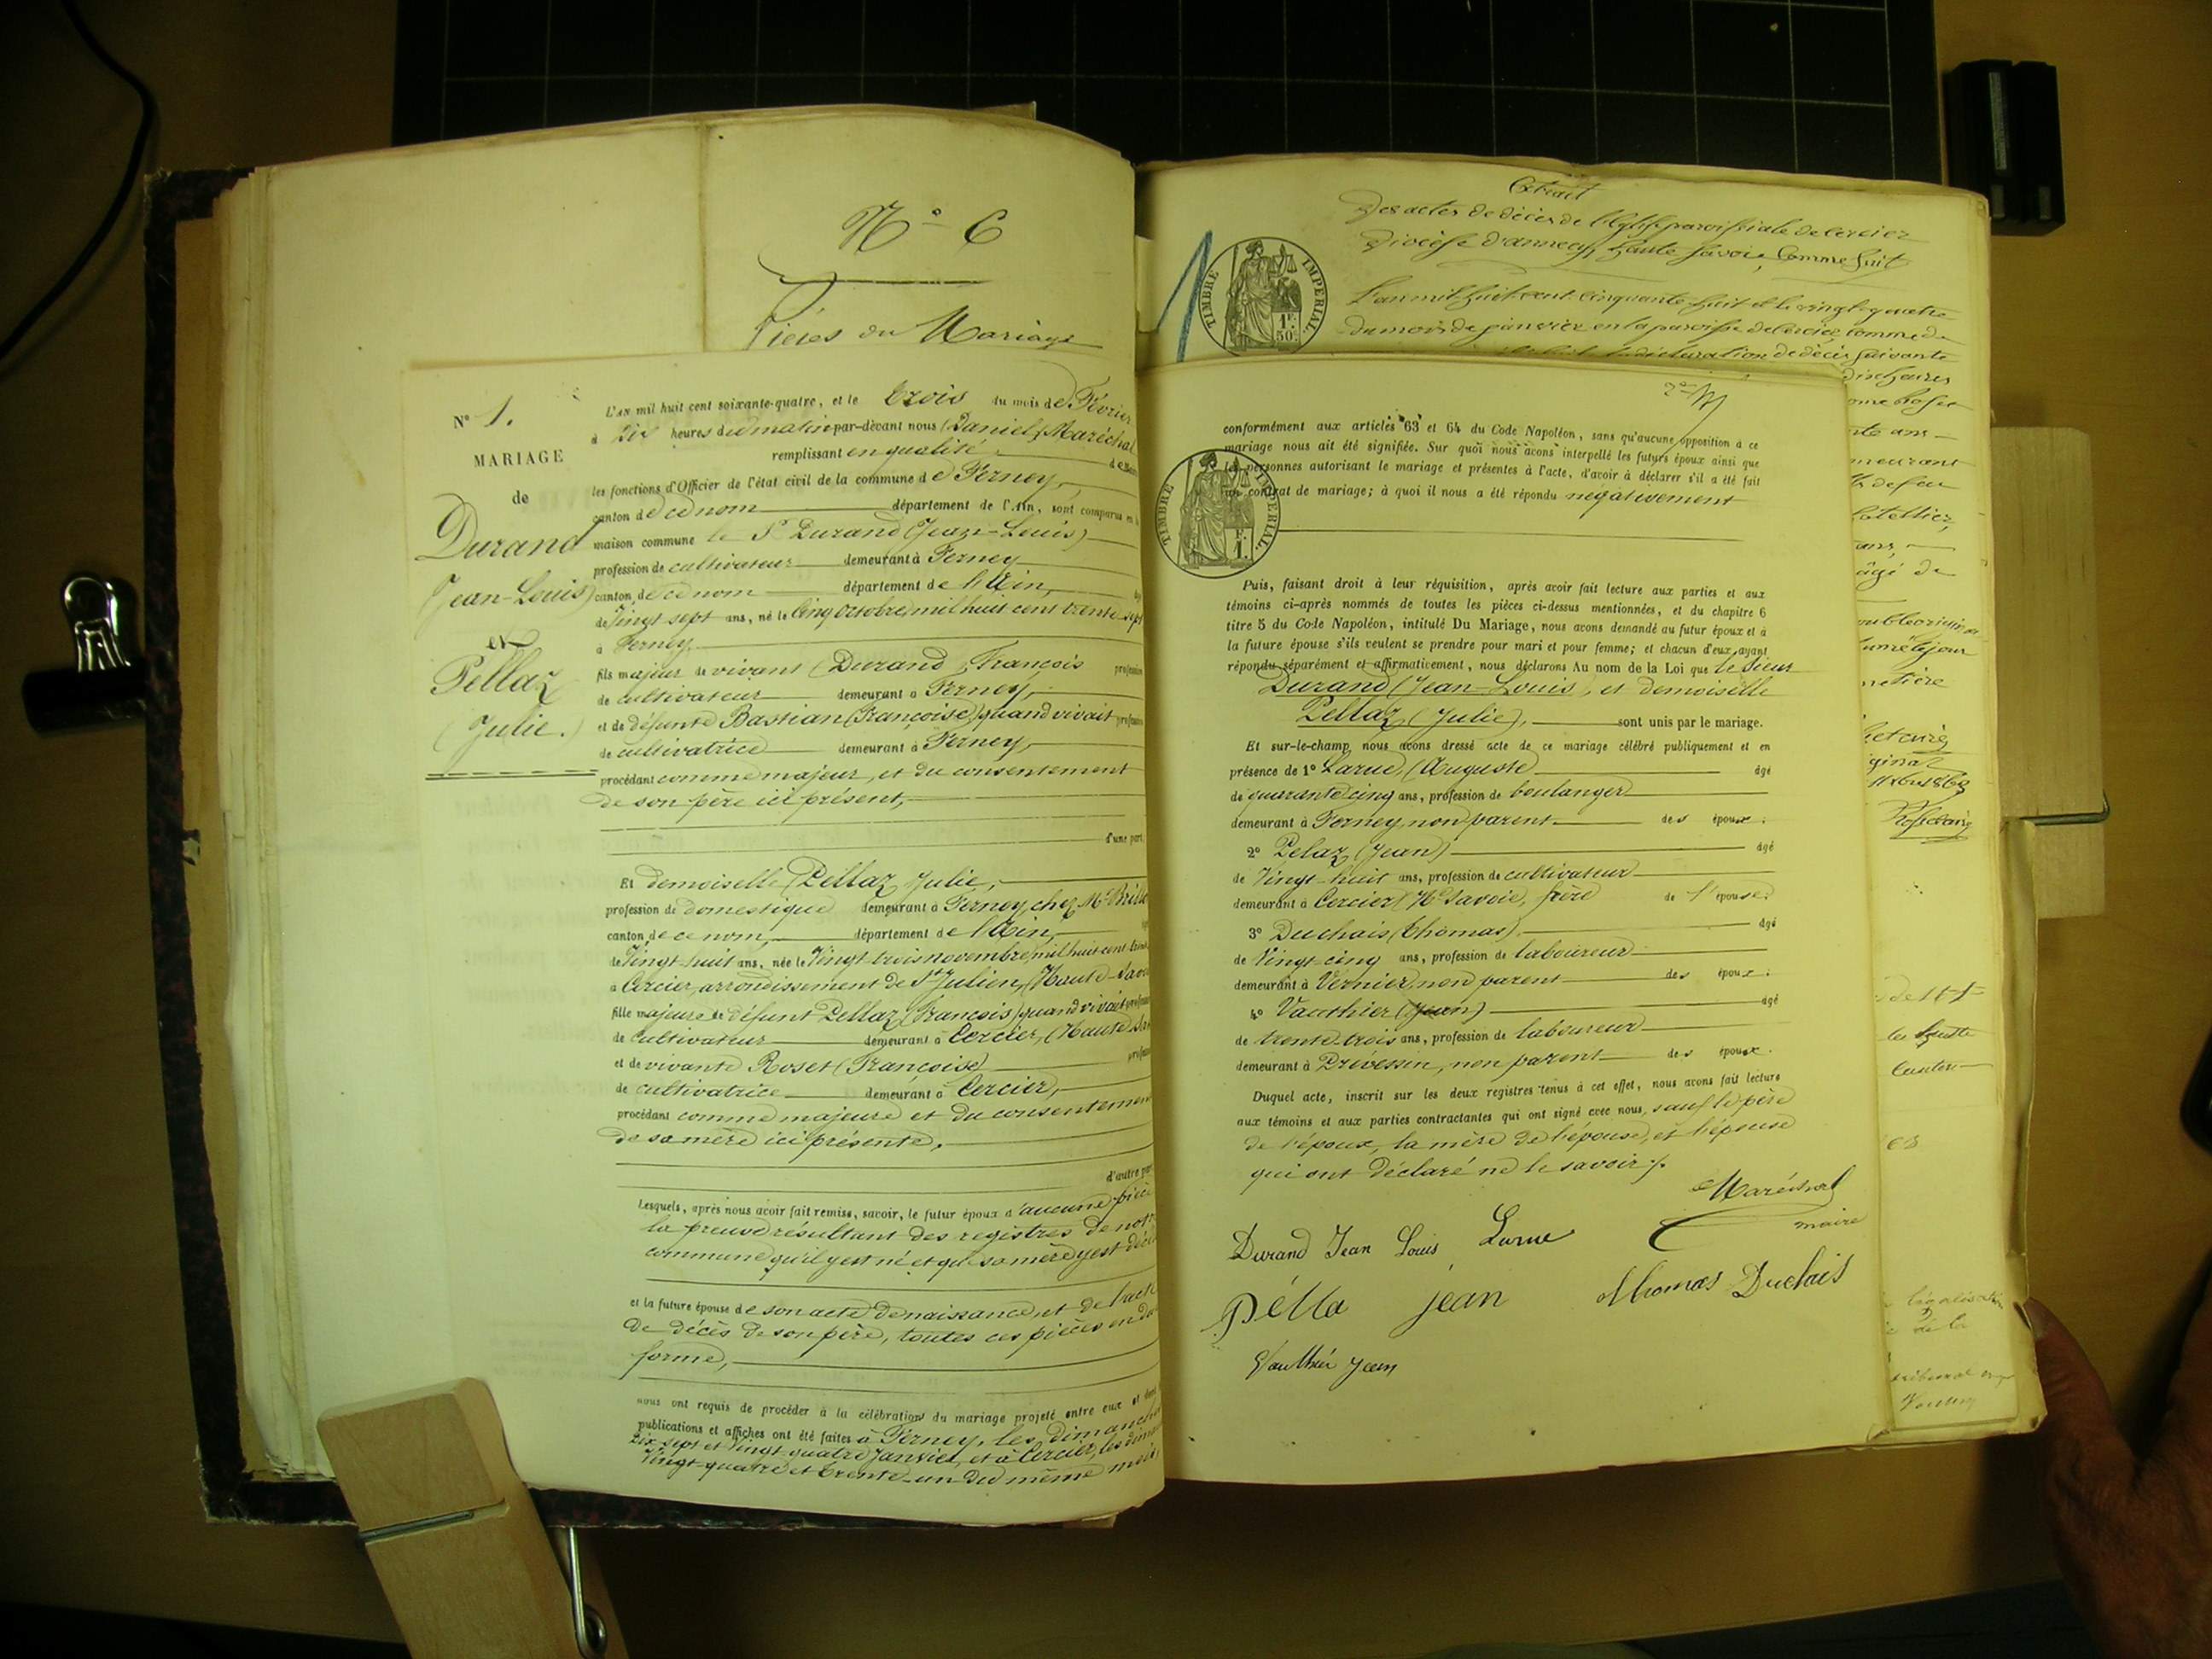 N° 6
Pièces du Mariage
N° 1.
MARIAGE
de
Durand
(Jean-Louis)
et
Pellaz
(Julie.)
L'AN mil huit cent soixante-quatre, et le trois du mois de Février
à Dix heures du matin par-dévant nous Daniel Maréchal
remplissant en qualité de
les fonctions d'Officier de l'état civil de la commune de Ferney,
canton de ce nom département de l'Ain, sont comparus en la
maison commune le Sr Durand (Jean-Louis)
profession de cultivateur demeurant à Ferney
canton de ce nom département de l'Ain,
de Vingt sept ans, né le Cinq Octobre mil huit cent trente-sept
à Ferney,
fils majeur de vivant Durand, François profession
de cultivateur demeurant à Ferney,
et de défunte Bastian (Françoise) quand vivait profession
de cultivatrice demeurant à Ferney,
procédant comme majeur, et du consentement
de son père ici présent,
d'une part,
Et demoiselle Pellaz Julie,
profession de domestique demeurant à Ferney, chez Mr
canton de ce nom, département de l'Ain,
de Vingt-huit ans, née le Vingt-trois novembre mil huit cent
à Cercier, arrondissement de St Julien, (Haute-Savoie
fille majeure de défunt Pellaz (François) quand vivait profession
de Cultivateur demeurant à Cercier, (Haute
et de vivante Roset (Françoise) profession
de cultivatrice demeurant à Cercier,
procédant comme majeure et du consentement
de sa mère ici présente,
d'autre part
Lesquels, après nous avoir fait remise, savoir, le futur époux d'aucune pièce
la preuve résultant des registres de notre
commune qu'il y est né et que sa mère y est
et la future épouse de son acte de naissance, et de l'acte
de décès de son père, toutes ces pièces en due
forme,
nous ont requis de procéder à la célébration du mariage projeté entre eux et dont
publications et affiches ont été faites à Ferney, les dimanches
Dix-sept et Vingt quatre Janvier, et à Cercier, les
Vingt-quatre et trente-un du même mois,
Extrait
Des actes de décès de l'Eglise paroissiale de Cercier
Diocèse d'annecy, haute Savoie, Comme Suit
L'an mil huit cent cinquante huit et le vingt quatre
du mois de janvier en la paroisse de Cercier, comme de
déclaration de décès suivante
TIMBRE IMPERIAL.
1F.
50C.
conformément aux articles 63 et 64 du Code Napoléon, sans qu'aucune opposition à ce
mariage nous ait été signifiée. Sur quoi nous avons interpellé les futurs époux ainsi que
les personnes autorisant le mariage et présentes à l'acte, d'avoir à déclarer s'il a été fait
un contrat de mariage; à quoi il nous a été répondu négativement
TIMBRE IMPERIAL.
1F.
Puis, faisant droit à leur réquisition, après avoir fait lecture aux parties et aux
témoins ci-après nommés de toutes les pièces ci-dessus mentionnées, et du chapitre 6
titre 5 du Code Napoléon, intitulé Du Mariage, nous avons demandé au futur époux et à
la future épouse s'ils veulent se prendre pour mari et pour femme; et chacun d'eux ayant
répondu séparément et affirmativement, nous déclarons Au nom de la Loi que le Sieur
Durand (Jean-Louis), et demoiselle
Pellaz (Julie), sont unis par le mariage.
Et sur-le-champ nous avons dressé acte de ce mariage célébré publiquement et en
présence de 1° Larue, (Auguste) âgé
de quarante cinq ans, profession de boulanger
demeurant à Ferney, non parent des époux.
2° Pelaz (Jean) âgé
de Vingt-huit ans, profession de cultivateur
demeurant à Cercier (Hte Savoie, frère de l'épouse.
3° Duchais (Thomas), âgé
de Vingt-cinq ans, profession de laboureur
demeurant à Vernier, non parent des époux.
4° Vauthier (Jean) âgé
de trente-trois ans, profession de laboureur
demeurant à Prévessin, non parent des époux.
Duquel acte, inscrit sur les deux registres tenus à cet effet, nous avons fait lecture
aux témoins et aux parties contractantes qui ont signé avec nous, sauf le père
de l'époux, la mère de l'épouse, et l'épouse
qui ont déclaré ne le savoir.
Maréchal
maire
Durand Jean Louis Larue
Pélla jean Thomas Duchais
Vauthier Jean